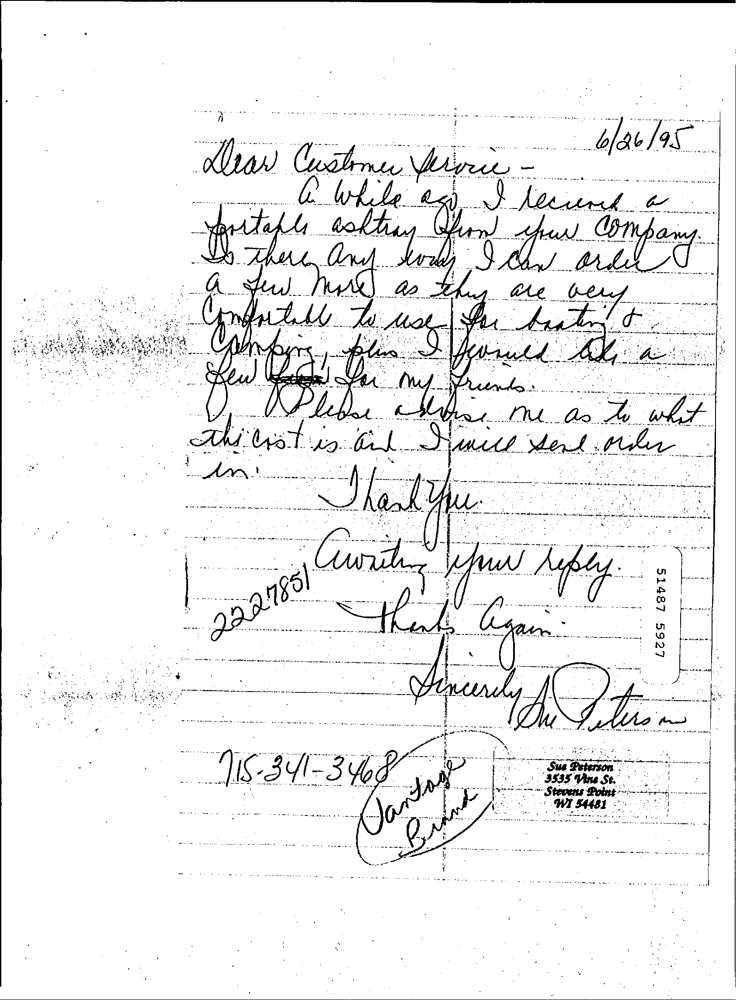 6/26/95
Dear Customer Service -
A while ago, I recieved a
portable ashtray from your company.
Is there any way I can order
a few more as they are very
comfortable to use for boating &
camping, plus I would like a
few for my friends.
Please advise me as to what
the cost is and I will send order
in.
Thank You.
Awaiting your reply.
2227851
Thanks Again.
51487 5927
Sincerely,
Sue Peterson
715-341-3468
Vantage
Brand
Sue Peterson
3535 Vine St.
Stevens Point
WI 54481